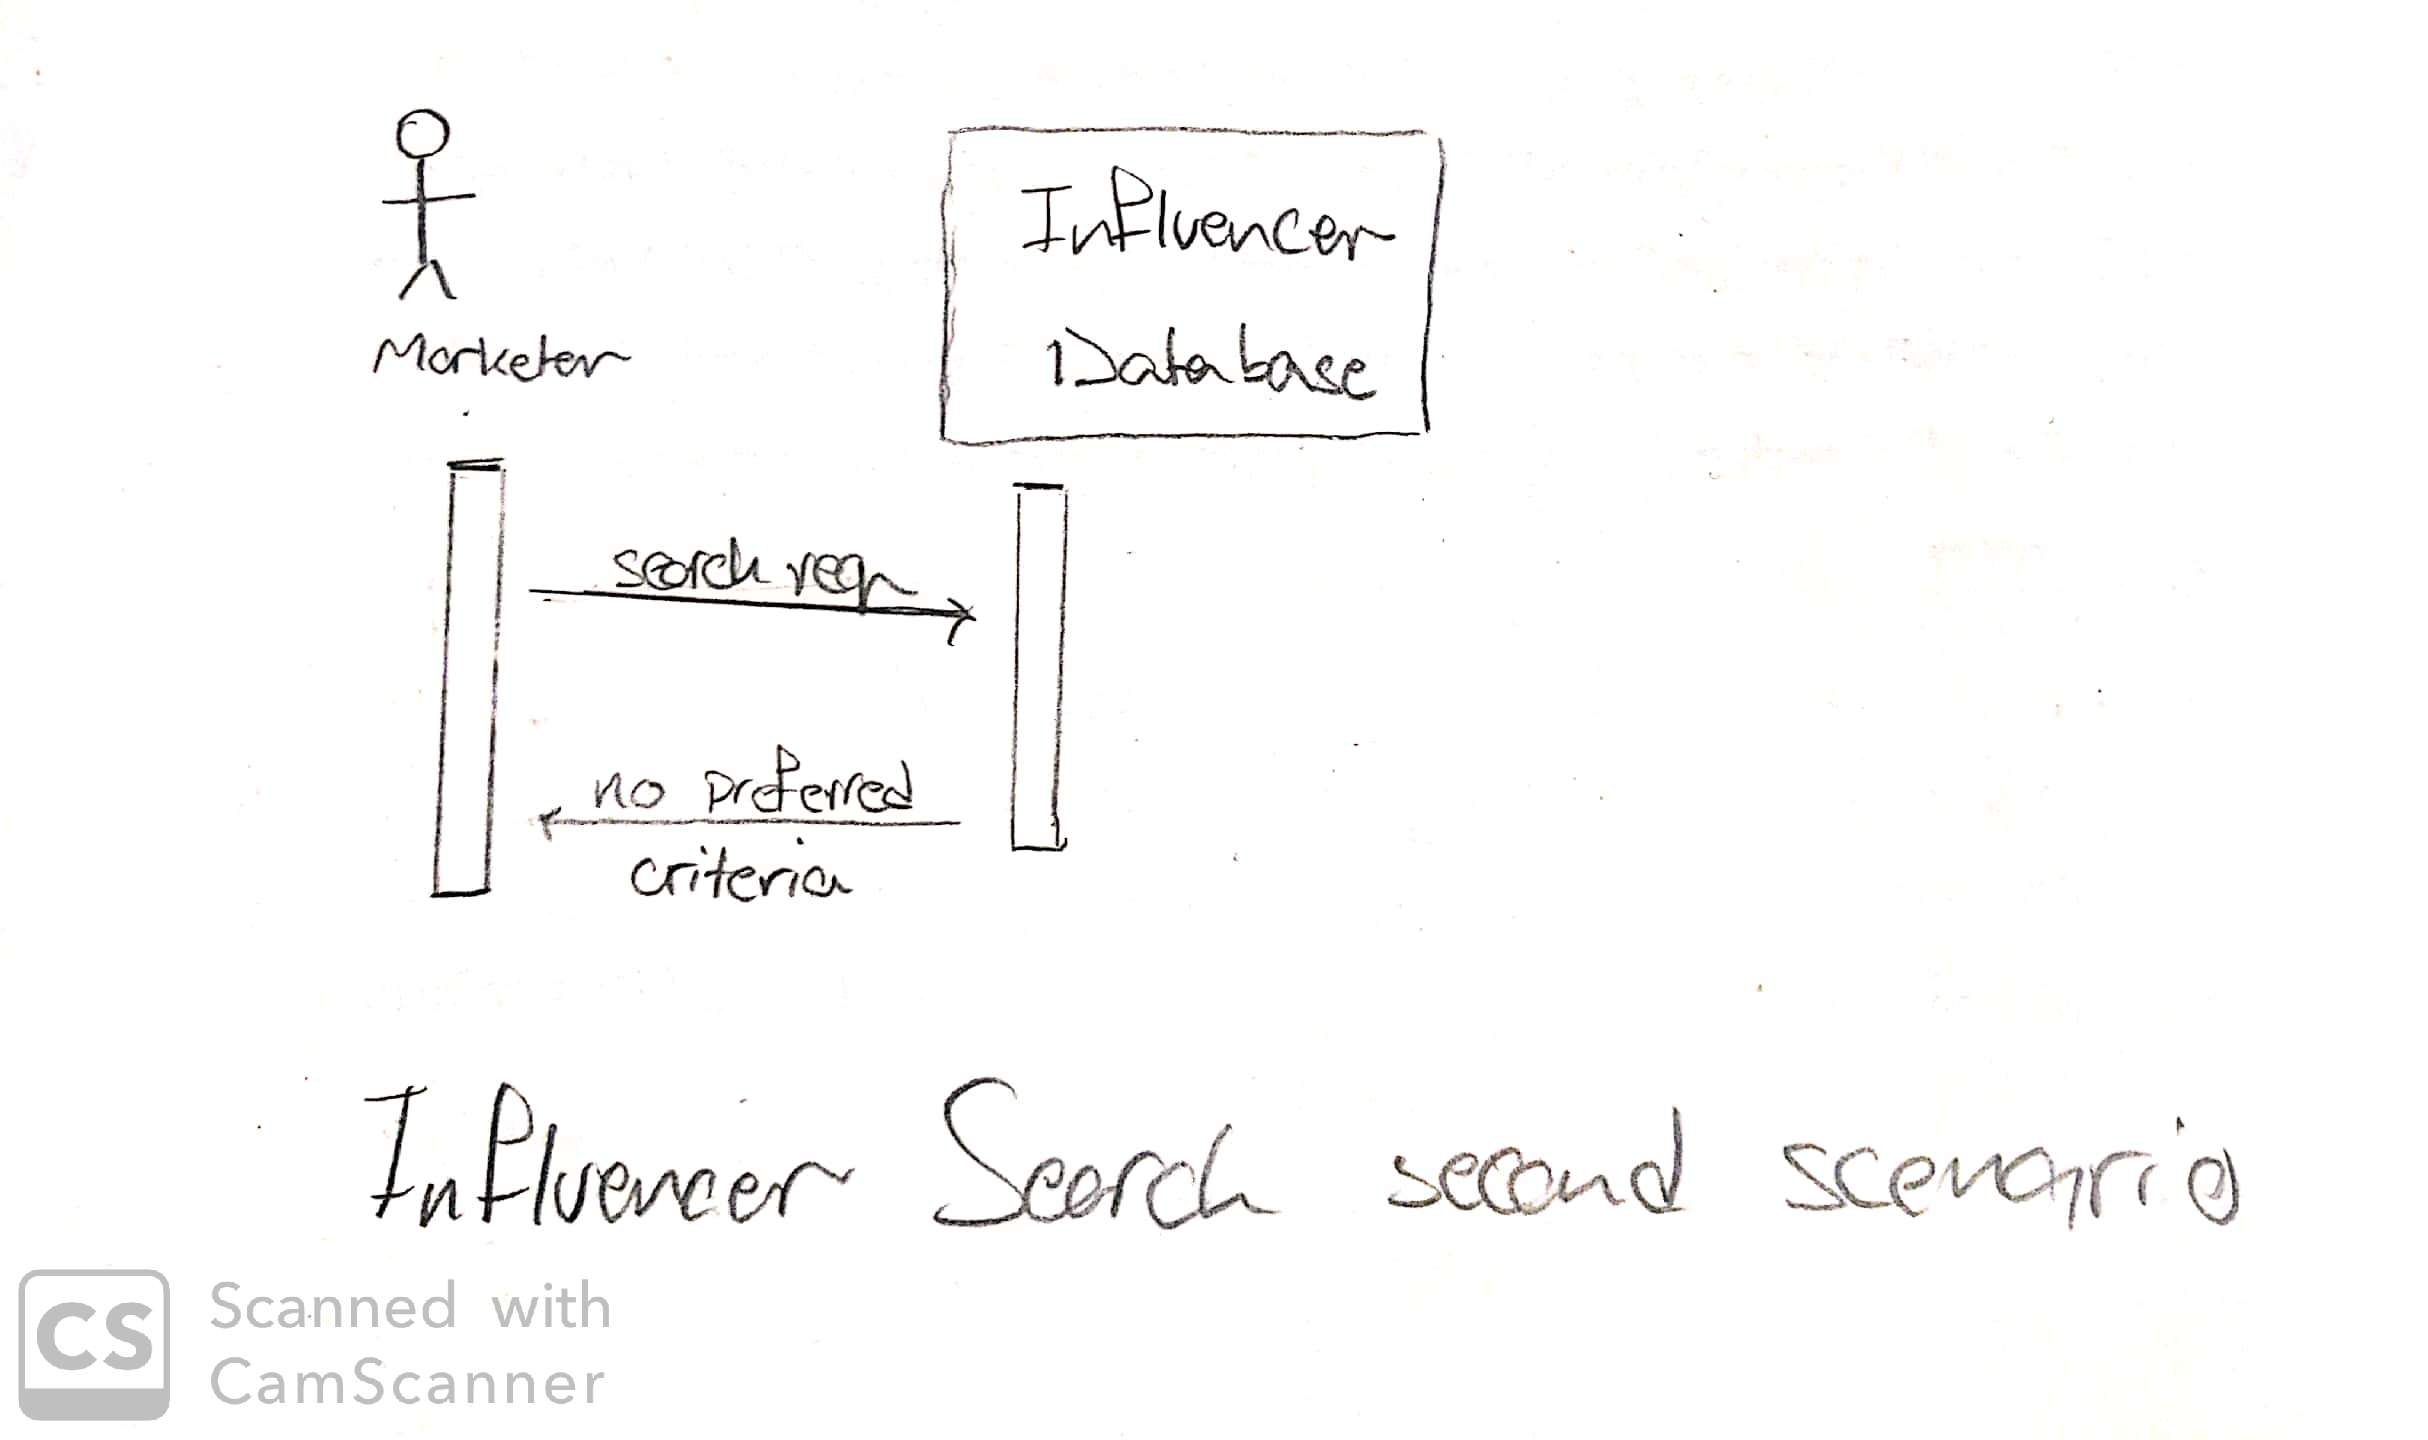 Influencer
Database
Marketer
search req
no preferred
criteria
Influencer Search second scenario
CS
Scanned with
CamScanner